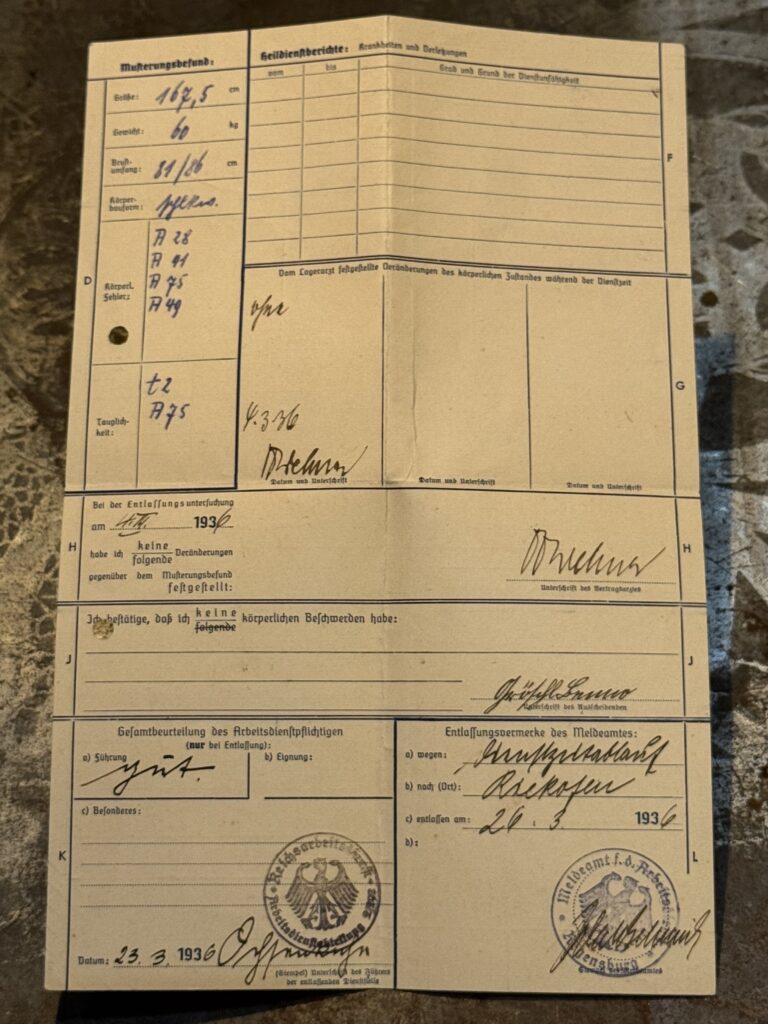 Musterungsbefund:
Größe: 167,5 cm
Gewicht: 60 kg
Brust-
umfang: 81/86 cm
Körper-
bauform:
D
Körperl.
Fehler:
A 28
A 91
A 75
A 49
Tauglich-
keit:
t2
A 75
Heildienstberichte: Krankheiten und Verletzungen
vom bis Grad und Grund der Dienstunfähigkeit
F
Vom Lagerarzt festgestellte Veränderungen des körperlichen Zustandes während der Dienstzeit
ohne
4.3.36
Datum und Unterschrift Datum und Unterschrift Datum und Unterschrift
G
H
Bei der Entlassungsuntersuchung
am 4.III. 1936
habe ich keine
folgende Veränderungen
gegenüber dem Musterungsbefund
festgestellt:
Unterschrift des Vertragsarztes
H
J
Ich bestätige, daß ich keine
folgende körperlichen Beschwerden habe:
Gröschl Benno
Unterschrift des Ausscheidenden
J
K
Gesamtbeurteilung des Arbeitsdienstpflichtigen
(nur bei Entlassung):
a) Führung
gut.
b) Eignung:
c) Besonderes:
Reichsarbeitsdienst
Datum: 23. 3. 1936
(Stempel) Unterschrift des Führers
der entlassenden Dienststelle
Entlassungsvermerke des Meldeamtes:
a) wegen: Dienstzeitablauf
b) nach (Ort): Riekofen
c) entlassen am: 26. 3. 1936
d):
Meldeamt f. d. Arbeits
Regensburg
Stempel des Meldeamtes
L